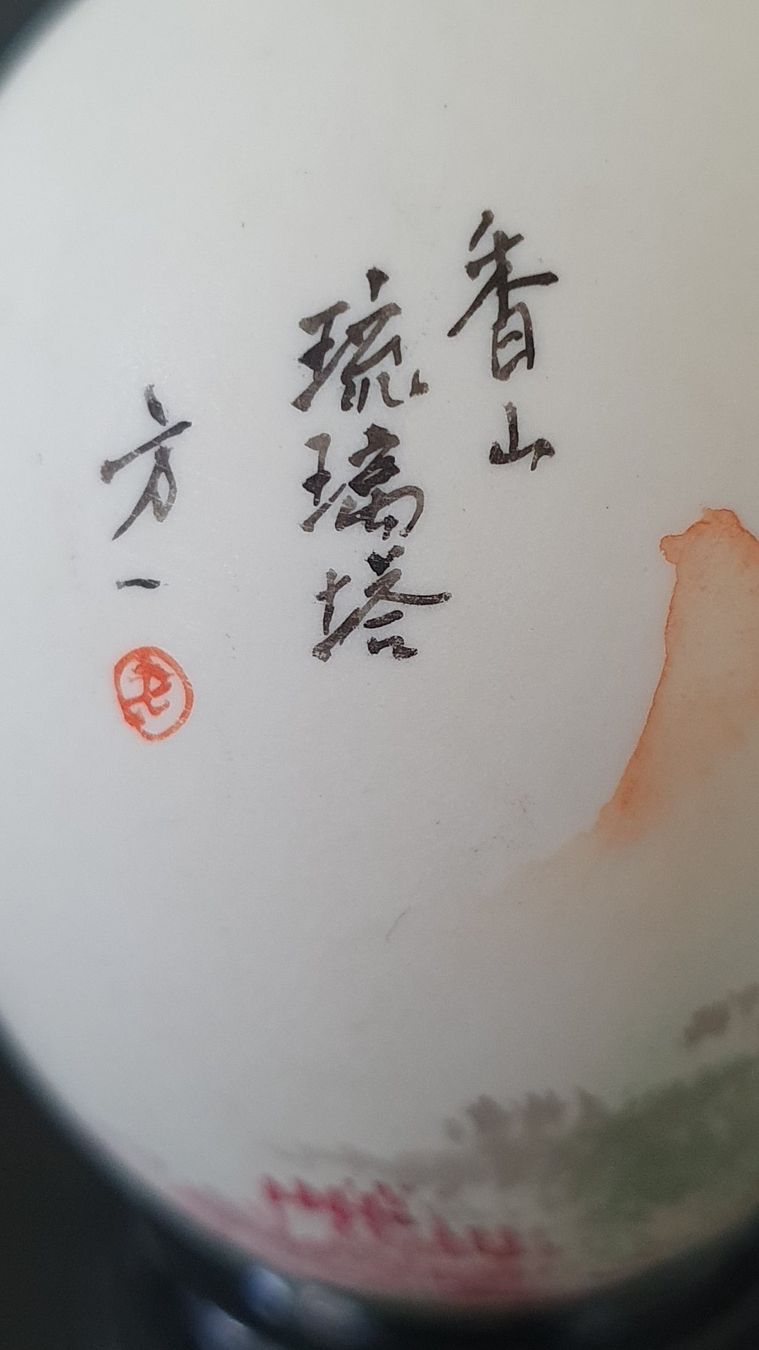 香山
琉璃塔
方一